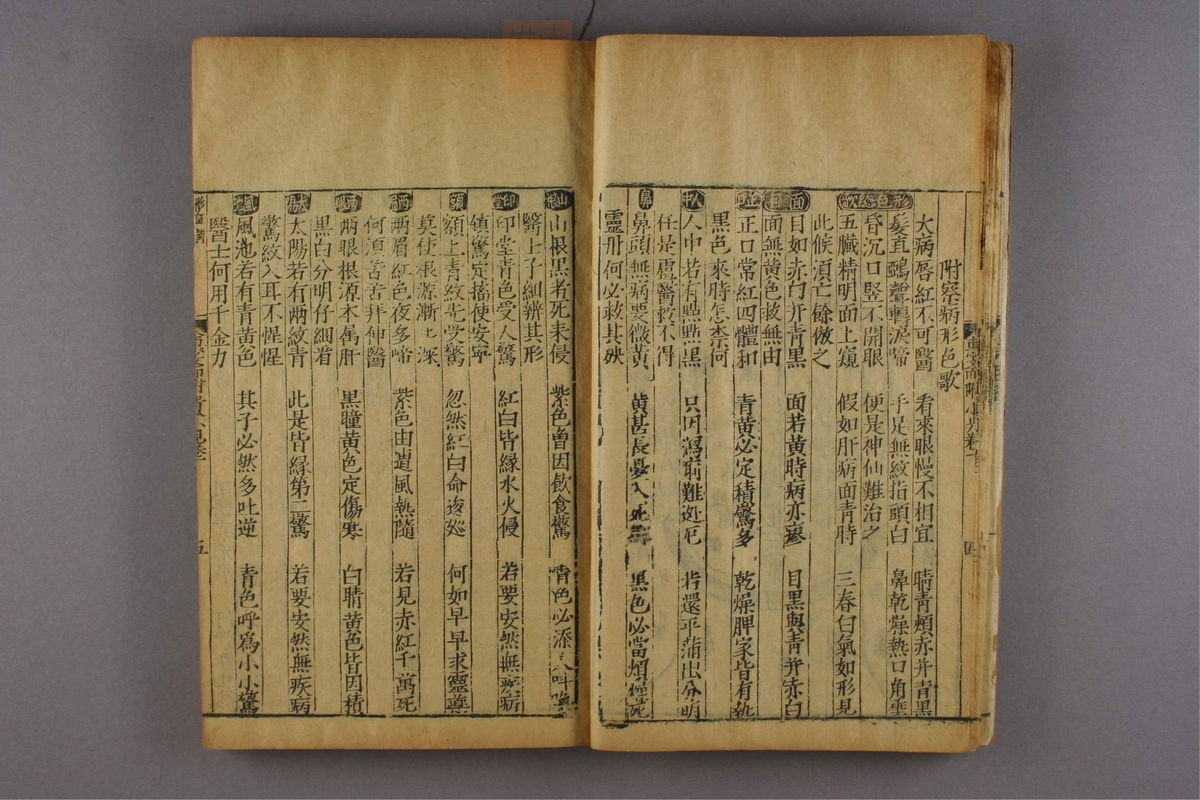 附察病形色歌
形色總歌
大病唇紅不可醫 看來眼慢不相宜 睛青頰赤并青黑
髮直鵶聲轉淚啼 手足無紋指頭白 鼻乾燥熱口角垂
昏沉口竪不開眼 便是神仙難治之
五臟精明面上窺 假如肝病面青時 三春白氣如形見
此候須亡餘倣之
面目
目如赤白并青黑 面若黃時病亦瘳 目黑與青并赤白
面無黃色救無由
正口
正口常紅四體和 青黃必定積驚多 乾燥脾家皆有熱
黑色來時怎柰何
人中
人中若有點點黑 只因瀉痢難迯厄 若還平蒲出分明
任是盧醫救不得
鼻
鼻頭無病要微黃 黃甚長憂入死 黑色必當煩燥死
靈丹何必救其殃
山根
山根黑者死來侵 紫色魯因飲食驚 青色必添
醫士子細辨其形
印堂
印堂青色受人驚 紅白皆緣水火侵 若要安然無疾病
鎮驚定搐便安寧
額
額上青紋先受驚 忽然紅白命逡廵 何如早早求靈藥
莫使根源漸匕深
兩眉
兩眉紅色夜多啼 紫色由遺風熱隨 若見赤紅千萬死
何須苦苦拜伸醫
兩眼
兩眼根源本属肝 黑瞳黃色定傷寒 白睛黃色皆因積
黑白分明仔細看
太陽
太陽若有兩紋青 此是皆緣第二驚 若要安然無疾病
驚紋入耳不惺惺
風池
風池若有青黃色 其子必然多吐逆 青色呼爲小小驚
醫士何用千金力
五